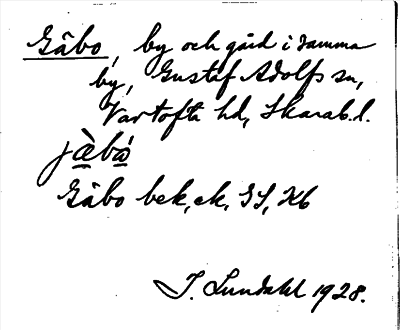 Gåbo, by och gård i samma
by, Gustaf Adolfs sn,
Vartofta hd, Skarab. l.
jæ̀bó
Gåbo bek, ek, GS, Kb
I. Lundahl 1928.